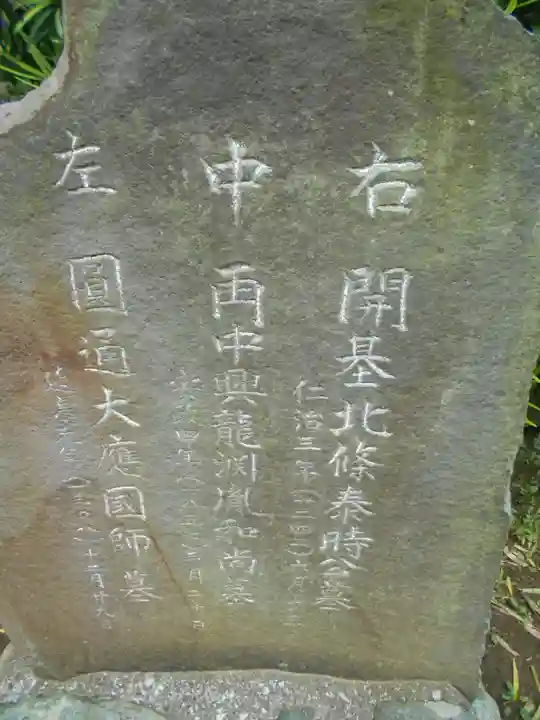 右 開基北條泰時公墓
仁治三年(一二四二)六月十五
中 両中興龍渕胤和尚墓
四年 月二十日
左 圓通大應國師墓
延慶元年(一三〇八)十二月廿九